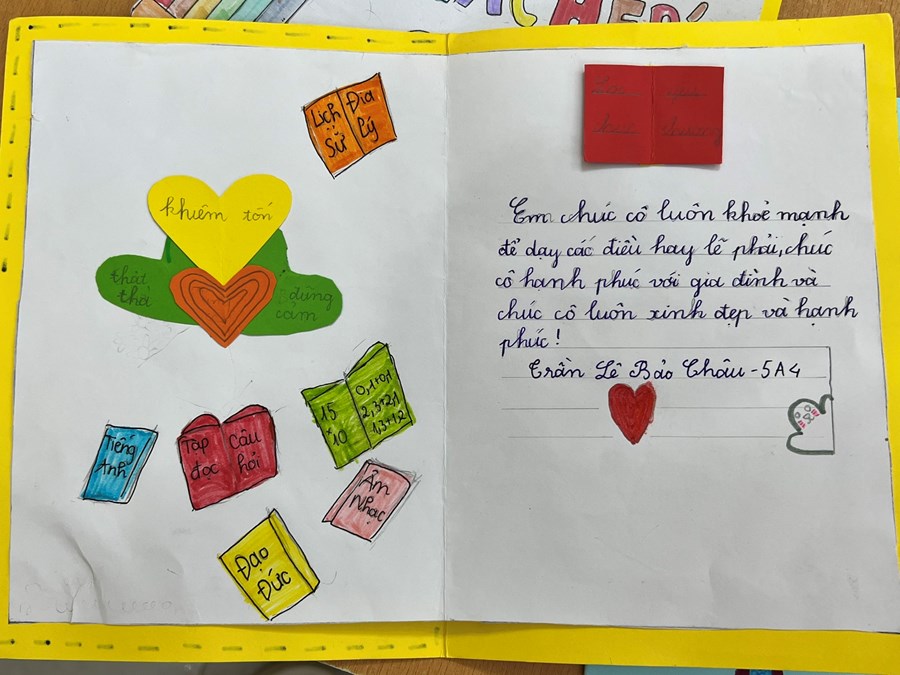 Lịch Sử
Địa lý
khiêm tốn
thật thà
dũng cảm
15
+10
0,1+0,1
2,3+2,1
1,3+1,2
Tiếng Anh
Tập đọc
Câu hỏi
Âm Nhạc
Đạo Đức
Em chúc cô luôn khoẻ mạnh
để dạy các điều hay lẽ phải, chúc
cô hạnh phúc với gia đình và
chúc cô luôn xinh đẹp và hạnh
phúc!
Trần Lê Bảo Châu - 5A4